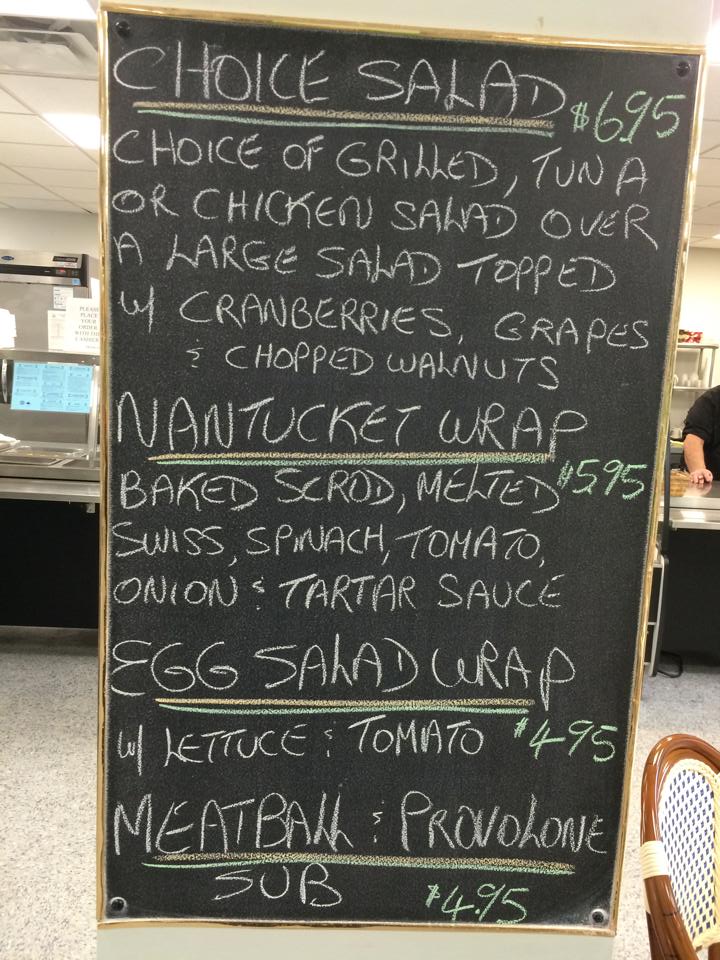 CHOICE SALAD $6.95
CHOICE OF GRILLED, TUNA
OR CHICKEN SALAD OVER
A LARGE SALAD TOPPED
W/ CRANBERRIES, GRAPES
& CHOPPED WALNUTS
NANTUCKET WRAP
BAKED SCROD, MELTED $5.95
SWISS, SPINACH, TOMATO,
ONION & TARTAR SAUCE
EGG SALAD WRAP
W/ LETTUCE & TOMATO $4.95
MEATBALL & PROVOLONE
SUB $4.95
PLEASE
PLACE
YOUR
ORDER
WITH THE
CASHIER